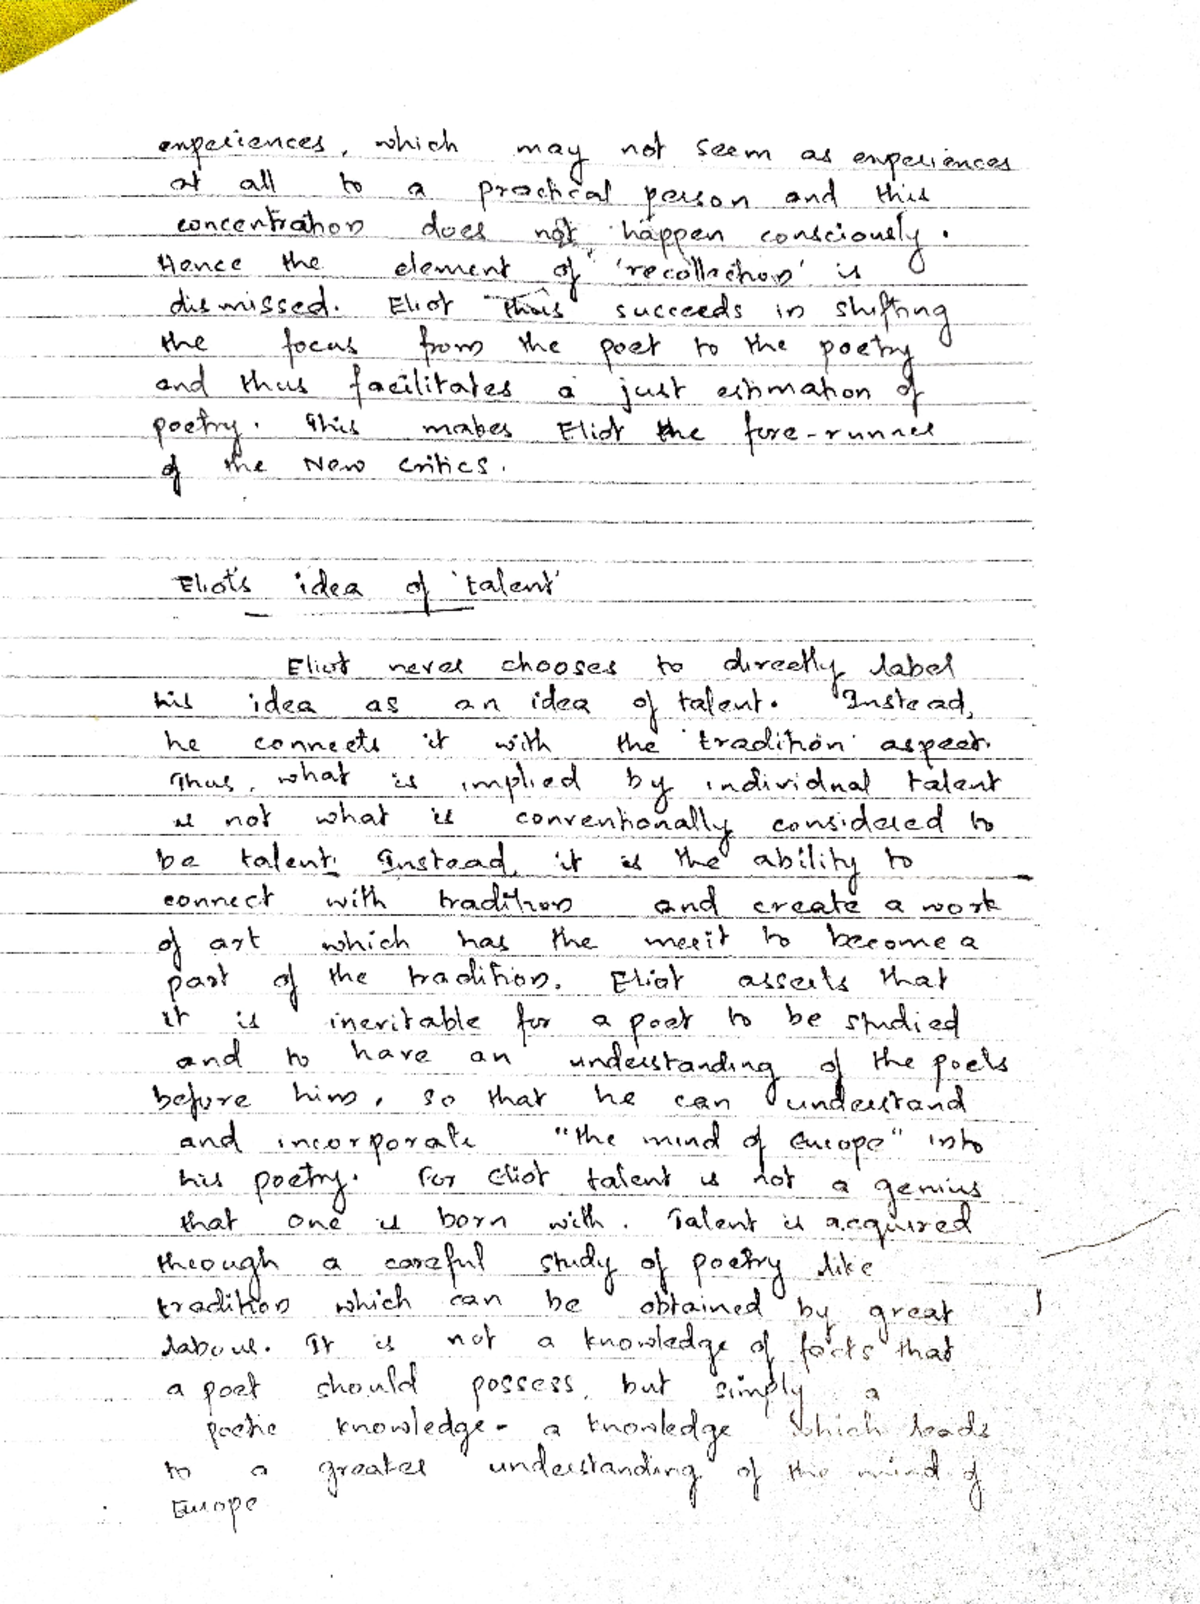 experiences, which may not seem as experiences
at all to a practical person and this
concentration does not happen consciously.
Hence the element of 'recollection' is
dismissed. Eliot thus succeeds in shifting
the focus from the poet to the poetry
and thus facilitates a just estimation of
poetry. This makes Eliot the fore-runner
of the New Critics.
Eliot's idea of 'talent'
Eliot never chooses to directly label
his idea as an idea of talent. Instead,
he connects it with the 'tradition' aspect.
Thus, what is implied by individual talent
is not what is conventionally considered to
be talent. Instead, it is the ability to
connect with tradition and create a work
of art which has the merit to become a
part of the tradition. Eliot asserts that
it is inevitable for a poet to be studied
and to have an understanding of the poets
before him, so that he can understand
and incorporate "the mind of Europe" into
his poetry. For Eliot talent is not a genius
that one is born with. Talent is acquired
through a careful study of poetry like
tradition which can be obtained by great
labour. It is not a knowledge of facts that
a poet should possess, but simply a
poetic knowledge - a knowledge which leads
to a greater understanding of the mind of
Europe